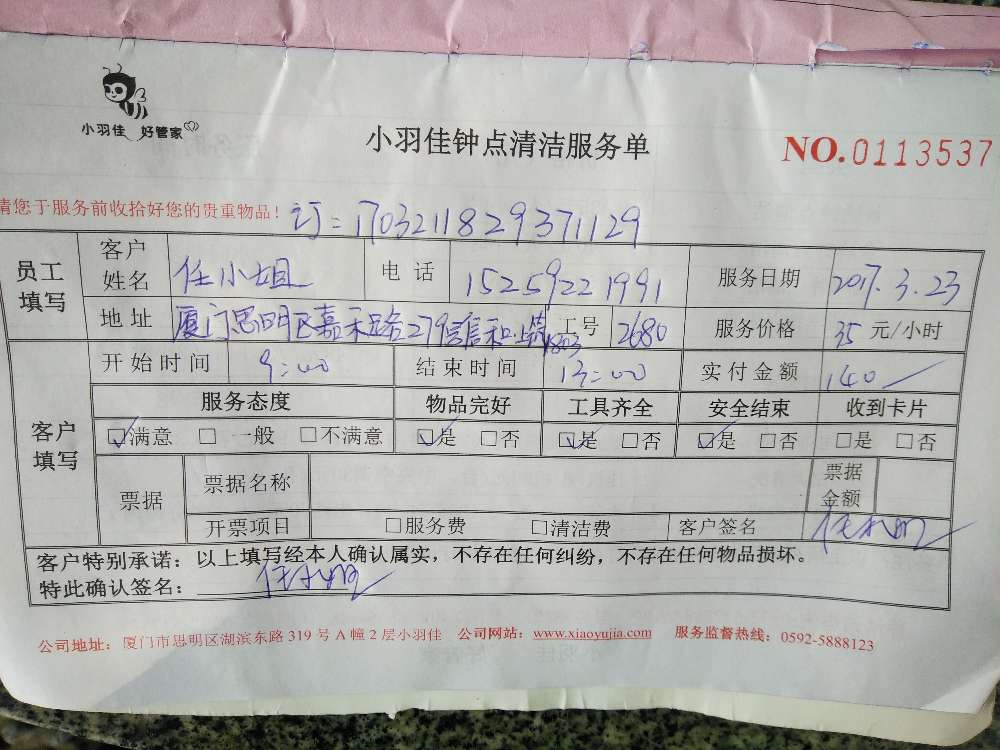 小羽佳 好管家
小羽佳钟点清洁服务单
NO.0113537
请您于服务前收拾好您的贵重物品！ 订=170321182937 1129
员工填写 客户姓名 任小姐 电话 15259221991 服务日期 2017.3.23
地址 厦门思明区嘉禾路279 信和 1803 工号 2680 服务价格 35 元/小时
客户填写 开始时间 9:00 结束时间 13:00 实付金额 140
服务态度 物品完好 工具齐全 安全结束 收到卡片
☑满意 □一般 □不满意 ☑是 □否 ☑是 □否 ☑是 □否 □是 □否
票据 票据名称 票据金额
开票项目 □服务费 □清洁费 客户签名
客户特别承诺：以上填写经本人确认属实，不存在任何纠纷，不存在任何物品损坏。
特此确认签名：
公司地址：厦门市思明区湖滨东路 319 号 A 幢 2 层小羽佳 公司网站：www.xiaoyujia.com 服务监督热线：0592-5888123